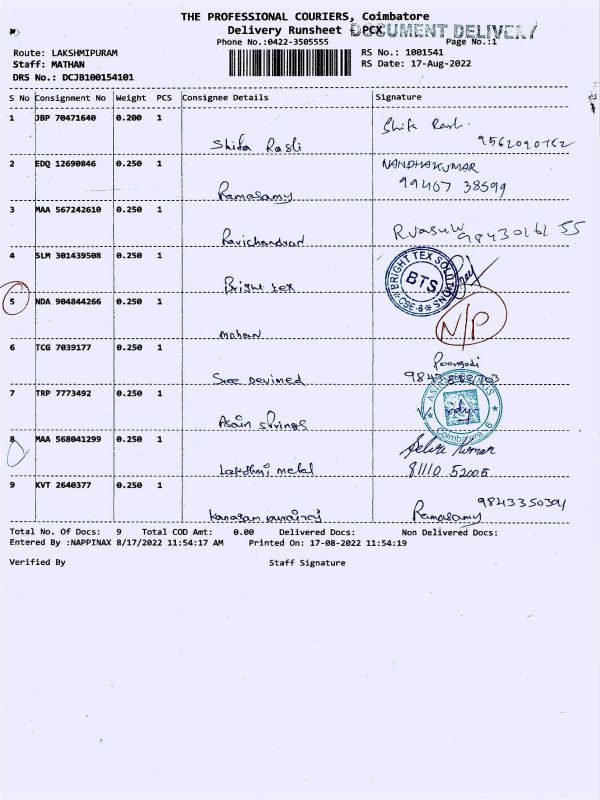 THE PROFESSIONAL COURIERS, Coimbatore
Delivery Runsheet - PCX DOCUMENT DELIVERY
Phone No.:0422-3505555 Page No.:1
Route: LAKSHMIPURAM RS No.: 1001541
Staff: MATHAN RS Date: 17-Aug-2022
DRS No.: DCJB100154101
S No Consignment No Weight PCS Consignee Details Signature
1 JBP 70471640 0.200 1
Shifa Rasli Shifa Rasli. 9562090762
2 EDQ 12690846 0.250 1 NANDHAKUMAR
Ramasamy 99407 38599
3 MAA 567242610 0.250 1
Ravichandran 98430161 55
4 SLM 301439508 0.250 1 BRIGHT TEX SOLUTIONS
Bright tex BTS
CBE-6
5 NDA 904844266 0.250 1
mohan N/P
6 TCG 7039177 0.250 1
Sree Devimed
7 TRP 7773492 0.250 1
Asain Springs Coimbatore - 6
8 MAA 568041299 0.250 1 Selva Kumar
Lakdhmi metal 81110 52005
9 KVT 2640377 0.250 1
Ramasamy
Total No. Of Docs: 9 Total COD Amt: 0.00 Delivered Docs: Non Delivered Docs:
Entered By :NAPPINAX 8/17/2022 11:54:17 AM Printed On: 17-08-2022 11:54:19
Verified By Staff Signature